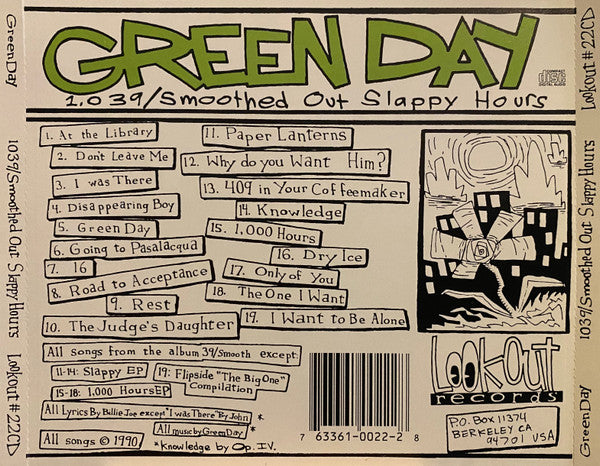 GREEN DAY
1,039/Smoothed Out Slappy Hours
COMPACT
disc
1. At the Library
2. Don't Leave Me
3. I was There
4. Disappearing Boy
5. Green Day
6. Going to Pasalacqua
7. 16
8. Road to Acceptance
9. Rest
10. The Judge's Daughter
11. Paper Lanterns
12. Why do you Want Him?
13. 409 in Your Coffeemaker
14. Knowledge
15. 1,000 Hours
16. Dry Ice
17. Only of You
18. The One I Want
19. I Want to Be Alone
All songs from the album 39/Smooth except:
11-14: Slappy EP
15-18: 1,000 Hours EP
19: Flipside "The Big One"
Compilation
All Lyrics By Billie Joe except "I was There" By John
All music by Green Day *
All songs © 1990
*Knowledge by Op. IV.
7 63361-0022-2 8
LOOKOUT
records
P.O. Box 11374
BERKELEY CA
94701 USA
Green Day
1039/Smoothed Out Slappy Hours
Lookout # 22CD
Green Day
1039/Smoothed Out Slappy Hours
Lookout # 22CD